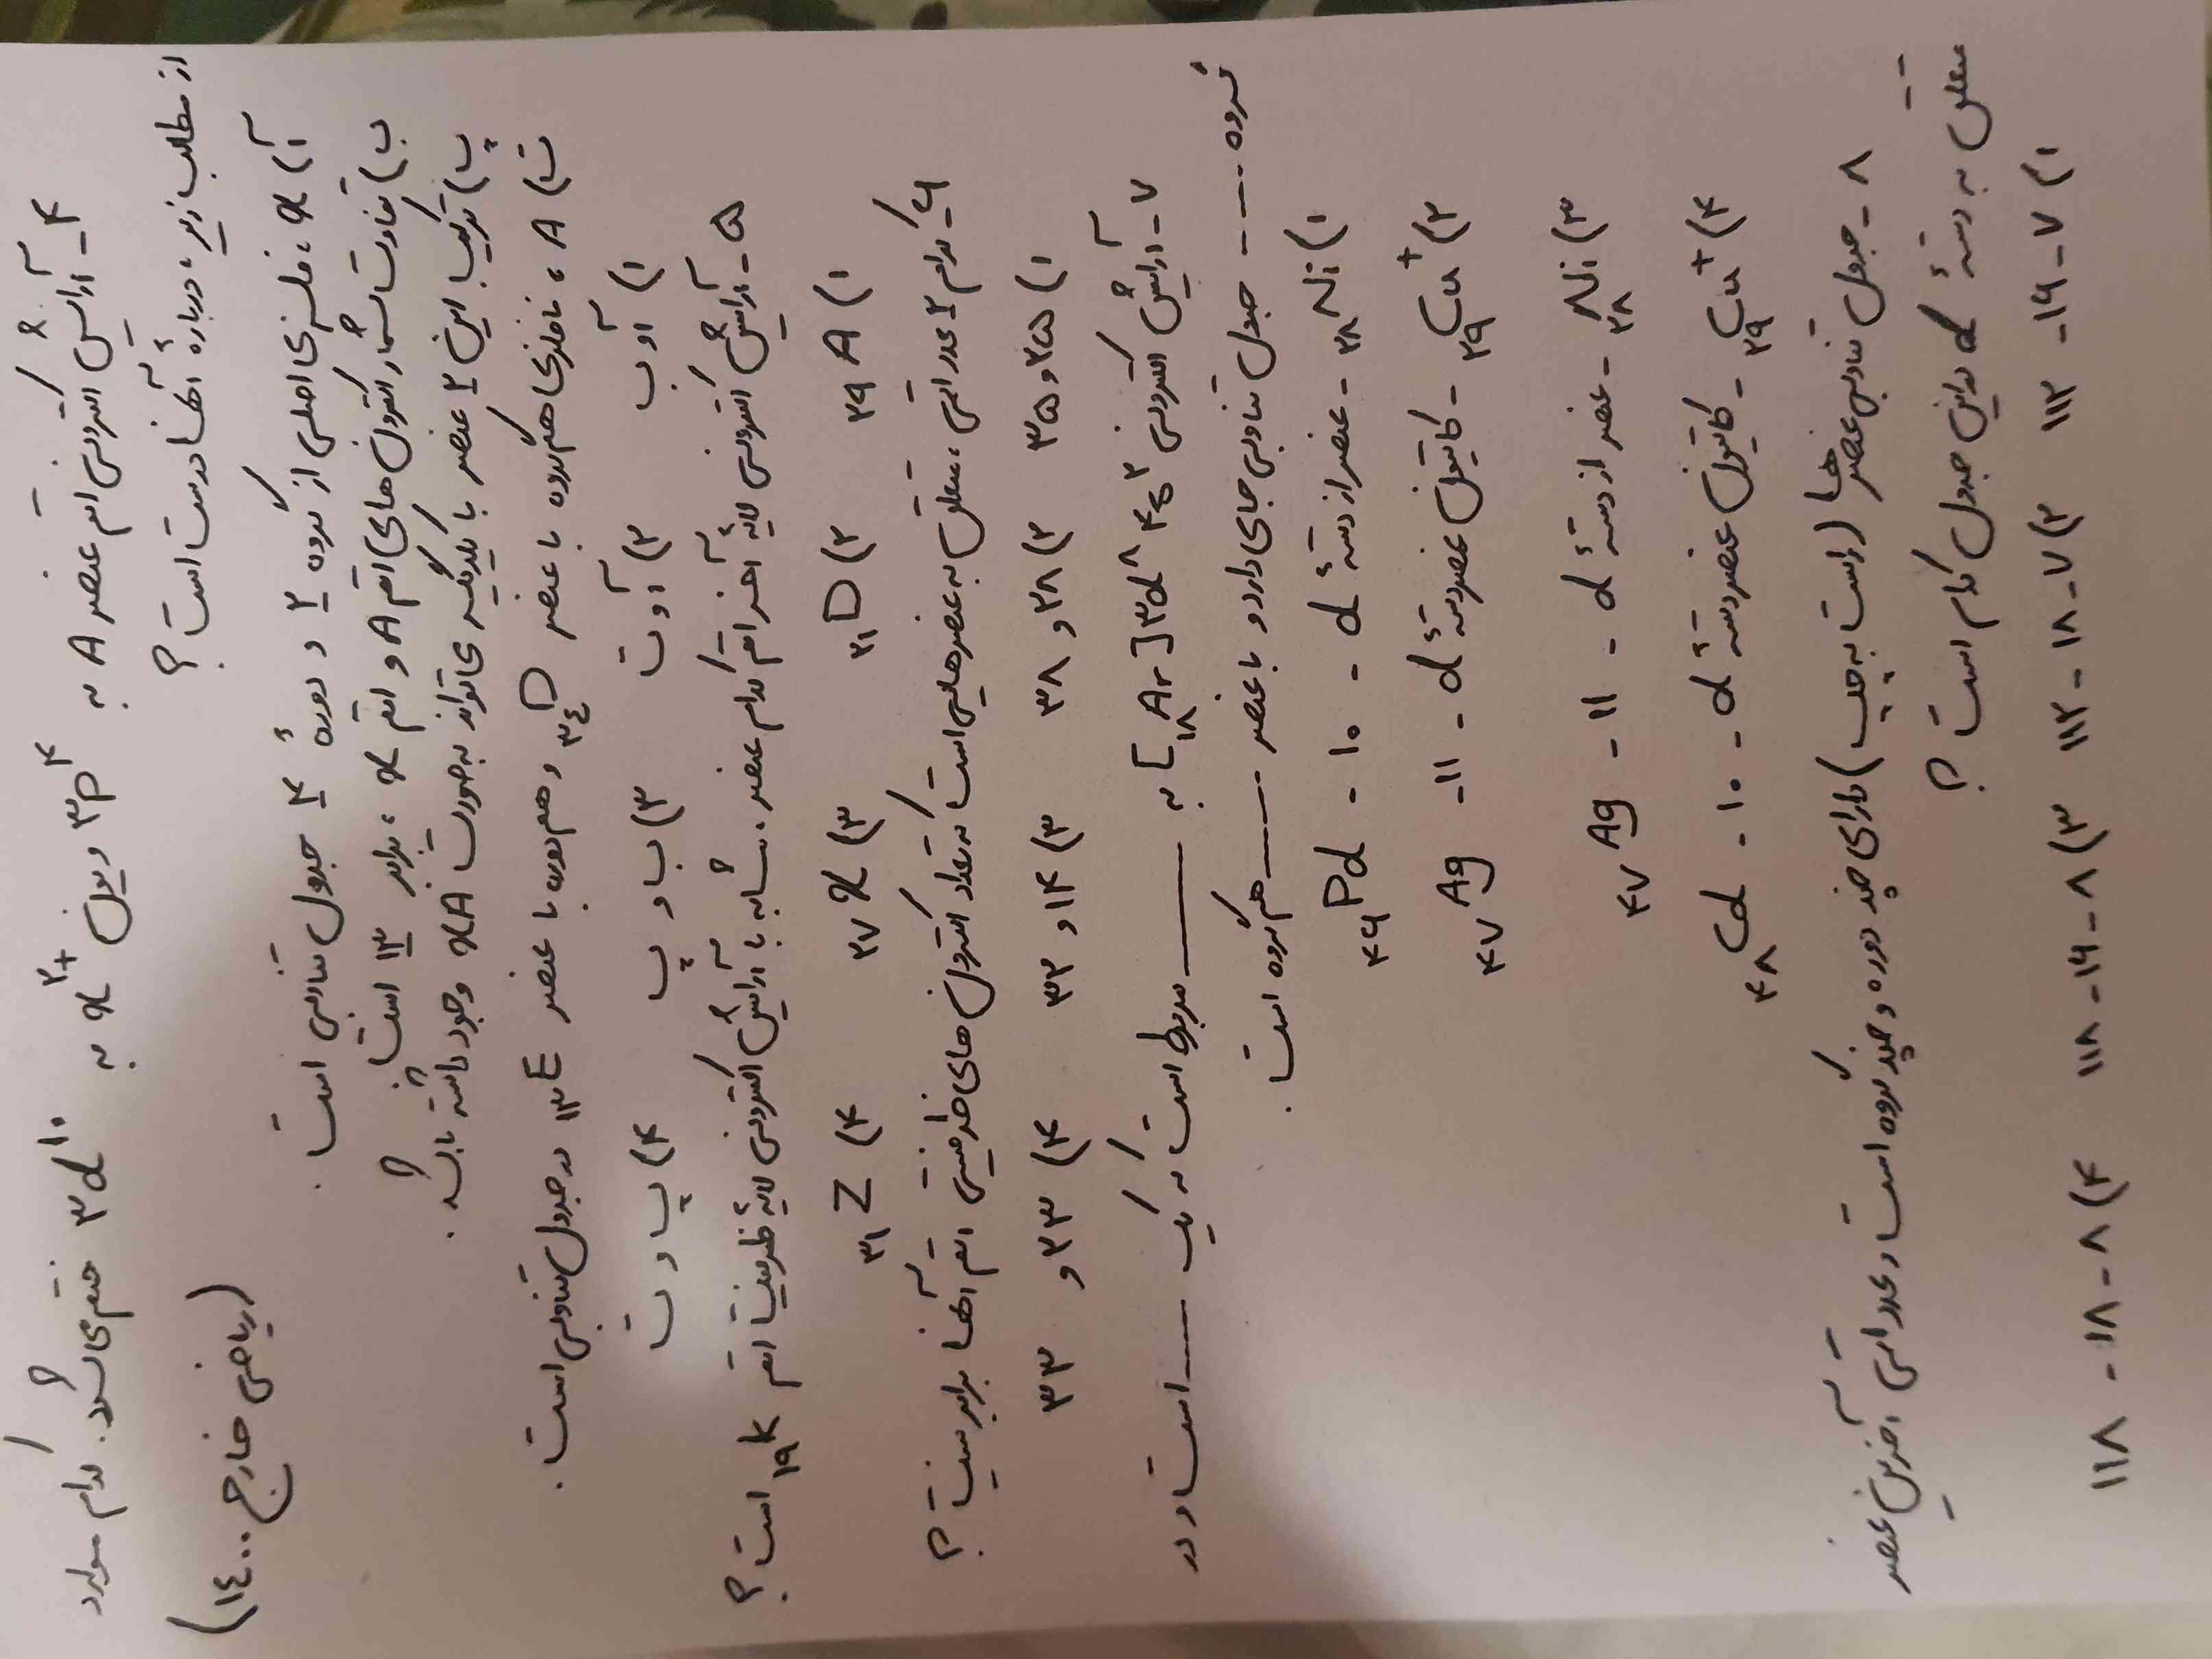 ۴- آرایش الکترونی اتم عنصر A به ۳p⁴ و یون X²⁺ به ۳d¹⁰ ختم می‌شود. کدام موارد
از مطالب زیر، درباره آنها درست است؟ (ریاضی خارج ۱۴۰۰)
آ) X، فلزی اصلی از گروه ۲ و دورهٔ ۴ جدول تناوبی است.
ب) تفاوت شمار الکترون های اتم A و اتم X، برابر ۱۳ است
پ) ترکیب این ۲ عنصر با یکدیگر می‌تواند به صورت XA وجود داشته باشد.
ت) A، نافلزی هم گروه با عنصر ₃₄D و هم دوره با عنصر ₁₃E در جدول تناوبی است.
۱) آ و ب ۲) آ و ت ۳) ب و پ ۴) پ و ت
۵- آرایش الکترونی لایهٔ آخر اتم کدام عنصر، مشابه با آرایش الکترونی لایهٔ ظرفیت اتم ₁₉K است؟
۱) ₂₉A ۲) ₃₁D ۳) ₂₷X ۴) ₃₁Z
۶- کدام ۲ عدد اتمی، متعلق به عنصرهایی است که تعداد الکترون های ظرفیتی اتم آنها برابر نیست؟
۱) ۲۵ و ۳۵ ۲) ۲۸ و ۳۸ ۳) ۱۴ و ۳۲ ۴) ۲۳ و ۳۳
۷- آرایش الکترونی [₁₈Ar]۳d⁸ ۴s² به ____ مربوط است که یک ____ است و در
گروه ---- جدول تناوبی جای دارد و با عنصر ____ هم گروه است.
۱) ₂₈Ni - عنصر از دستهٔ d - ۱۰ - ₄₆Pd
۲) ₂₉Cu⁺ - کاتیون عنصر دستهٔ d - ۱۱ - ₄₇Ag
۳) ₂₈Ni - عنصر از دستهٔ d - ۱۱ - ₄₇Ag
۴) ₂₉Cu⁺ - کاتیون عنصر دستهٔ d - ۱۰ - ₄₈Cd
۸- جدول تناوبی عنصرها (راست به چپ) دارای چند دوره و چند گروه است و عدد اتمی آخرین عنصر
متعلق به دستهٔ d در این جدول کدام است؟
۱) ۷ - ۱۶ - ۱۱۲ ۲) ۷ - ۱۸ - ۱۱۲ ۳) ۸ - ۱۶ - ۱۱۸ ۴) ۸ - ۱۸ - ۱۱۸